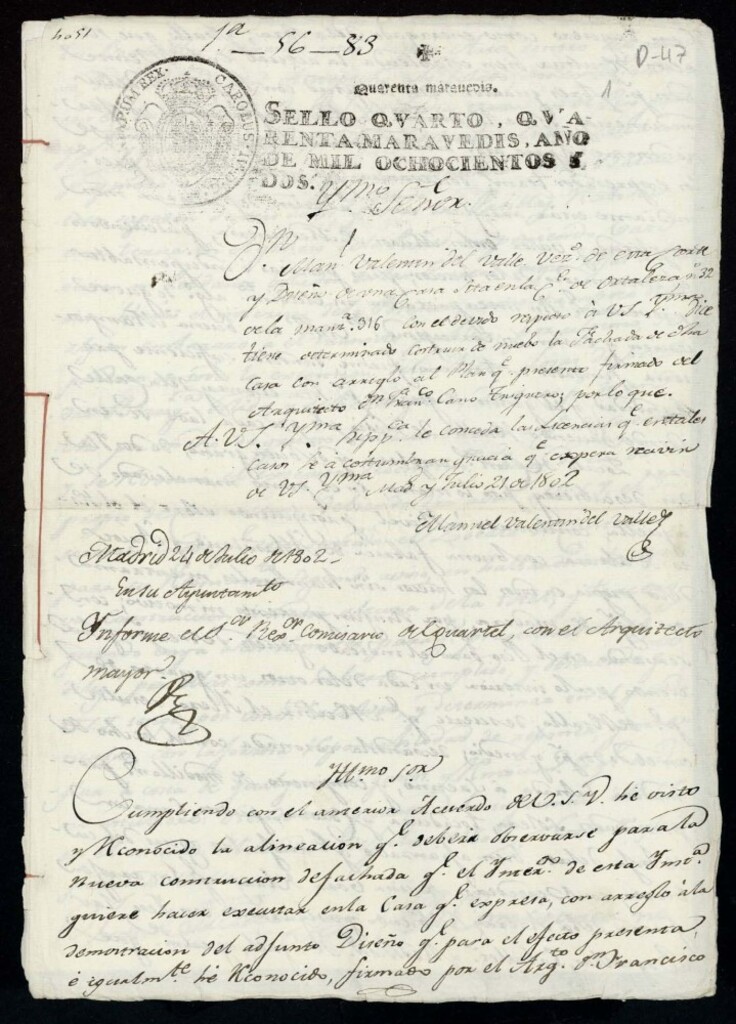 1ª—56—83
D-47
1
Quarenta marauedis.
CAROLUS IV REX
SELLO QVARTO, QVA-
RENTA MARAVEDIS, AÑO
DE MIL OCHOCIENTOS Y
DOS.
Yᵐᵒ Señor.
Dⁿ Manˡ Valentin del Valle Vezº de esta Corte
y Dueño de una Casa sita en la Cˡ de Ortaleza nº 32
de la manzª 316 con el devido respeto à VS Yᵐᵃ Dice
tiene determinado costruir de nuebo la Fachada de dha
Casa con arreglo al Plan qᵉ presenta firmado del
Arquitecto Dⁿ Franᶜᵒ Cano Trigueros por lo que.
A. VS. Yᵐᵃ Suppᶜᵃ le conceda las Licencias qᵉ en tales
Casos se acostumbran gracia qᵉ espera recivir
de VS. Yᵐᵃ Mad y Julio 21 de 1802
Manuel Valentin del Valle
Madrid 24 de Julio de 1802—
En su Ayuntamᵗᵒ
Informe el Sᵒʳ Rexᵒʳ Comisario del Quartel, con el Arquitecto
mayor.
Yllᵐᵒ Sᵒʳ
Cumpliendo con el anterior Acuerdo de V.S.Y. hé visto
y Rconocido la alineacion qᵉ deberá observarse para la
nueva construccion de fachada qᵉ el Interº de esta Instª
quiere hacer executar en la Casa qᵉ expresa, con arreglo á la
demostracion del adjunto Diseño qᵉ para el efecto presenta
é igualmᵗᵉ hé Rconocido, firmado por el Arqᵗᵒ Dⁿ Francisco